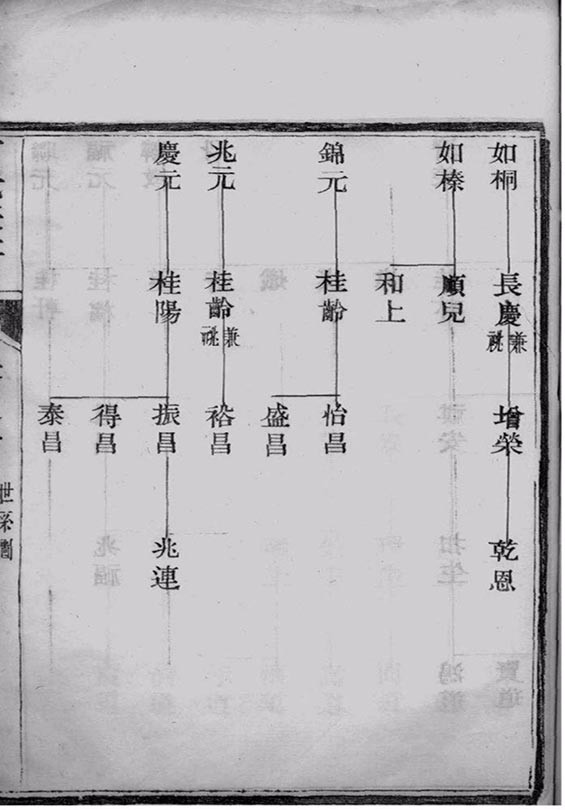 如桐
長慶
兼祧
增榮
乾恩
如榛
順兒
和上
錦元
桂齡
怡昌
盛昌
兆元
桂齡
兼祧
裕昌
慶元
桂陽
振昌
兆連
得昌
泰昌
世系圖